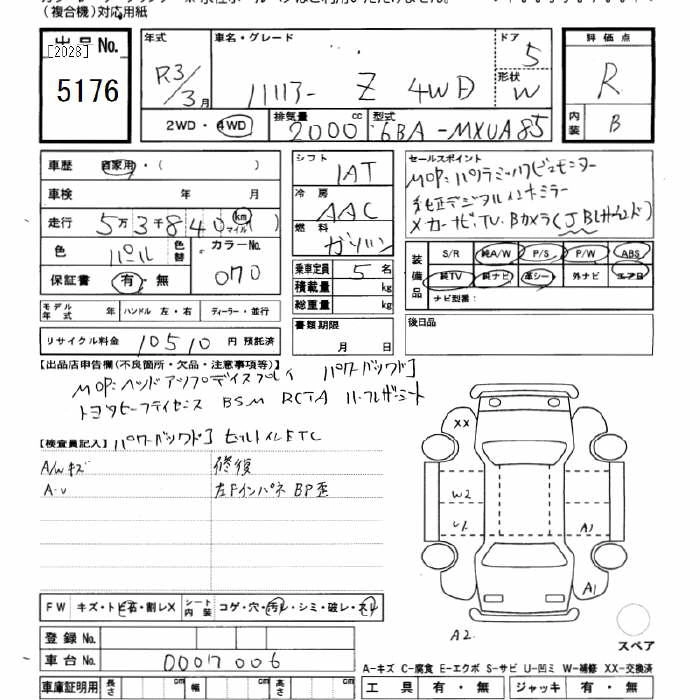 (複合機)対応用紙
出品No.
[2028]
5176
年式
R3/3月
車名・グレード
ハリアー Z 4WD
ドア
5
形状
W
評価点
R
内装
B
2WD・4WD
排気量 cc
2000
型式
6BA-MXUA85
車歴 自家用・( )
車検 年 月
走行 5万3千840 km マイル
色 パール 色替
カラーNo. 070
保証書 有・無
シフト
IAT
冷房
AAC
燃料
ガソリン
乗車定員 5 名
積載量 kg
総重量 kg
セールスポイント
MOP:パノラミックビューモニター
純正デジタルインナーミラー
メーカーナビ.TV.Bカメラ(JBLサウンド)
装備品
S/R 純A/W P/S P/W ABS
純TV 純ナビ 革シート 外ナビ エアB
ナビ型番:
モデル年式 年 ハンドル 左・右 ディーラー・並行
リサイクル料金 10510 円 預託済
書類期限
月 日
後日品
【出品店申告欄(不良箇所・欠品・注意事項等)】
MOP:ヘッドアップディスプレイ パワーバックドア
トヨタセーフティセンス BSM RCTA
【検査員記入】 パワーバックドア ビルトインETC
A/Wキズ
A-U
修復
左Fインパネ BP歪
XX
W2
U1
A1
A1
A2
スペア
FW キズ・トビ石・割レX
シート内装 コゲ・穴・汚レ・シミ・破レ・スレ
登録No.
車台No. 0007006
A-キズ C-腐食 E-エクボ S-サビ U-凹ミ W-補修 XX-交換済
車庫証明用 長さ cm 幅 cm 高さ cm
工具 有・無 ジャッキ 有・無